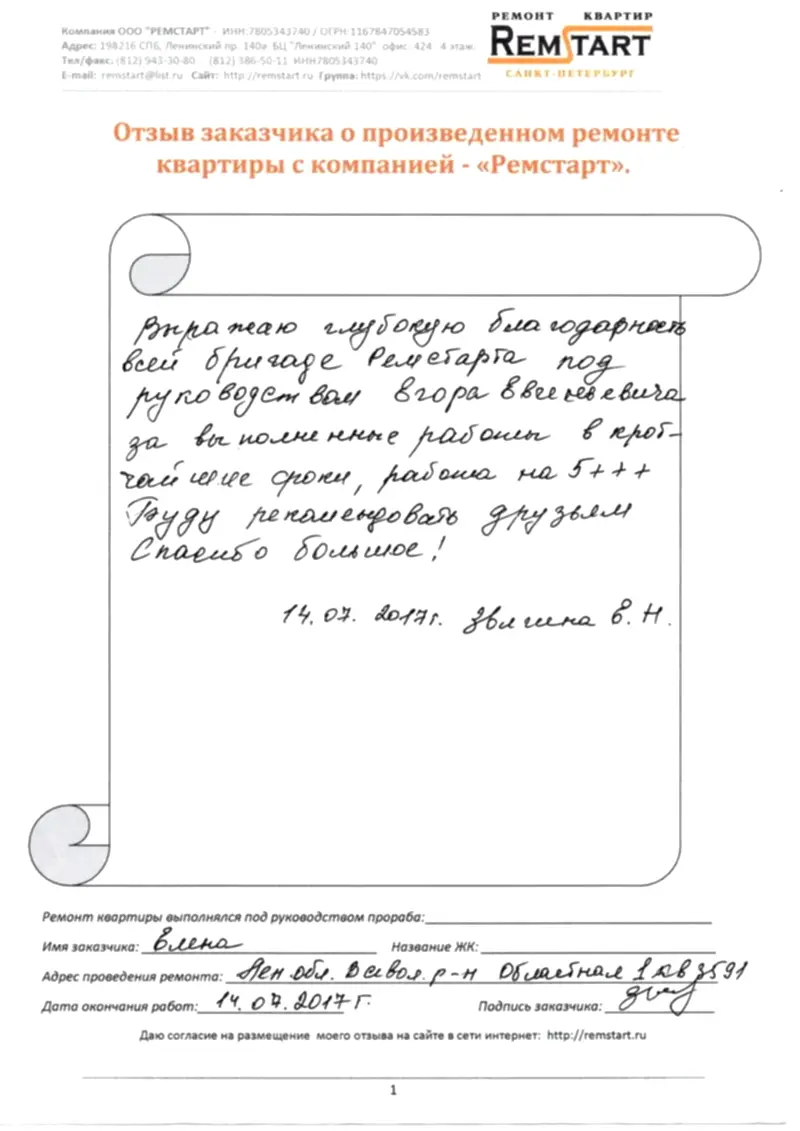 Компания ООО "РЕМСТАРТ" · ИНН:7805343740 / ОГРН:1167847054583
Адрес: 198216 СПб, Ленинский пр. 140а БЦ "Ленинский 140" офис. 424 4 этаж.
Тел/факс. (812) 943-30-80 (812) 386-50-11 ИНН7805343740
E-mail: remstart@list.ru Сайт: http://remstart.ru Группа: https://vk.com/remstart
РЕМОНТ КВАРТИР
REMSTART
САНКТ-ПЕТЕРБУРГ
Отзыв заказчика о произведенном ремонте
квартиры с компанией - «Ремстарт».
Выражаю глубокую благодарность
всей бригаде Ремстарта под
руководством Егора Евгеньевича
за выполненные работы в крот-
чайшие сроки, работа на 5+++
Буду рекомендовать друзьям
Спасибо большое!
14.07.2017г. Звягина Е.Н.
Ремонт квартиры выполнялся под руководством прораба:
Имя заказчика: Елена Название ЖК:
Адрес проведения ремонта: Лен обл. Всевол. р-н Областная 1 кв 3591
Дата окончания работ: 14.07.2017г. Подпись заказчика:
Даю согласие на размещение моего отзыва на сайте в сети интернет: http://remstart.ru
1